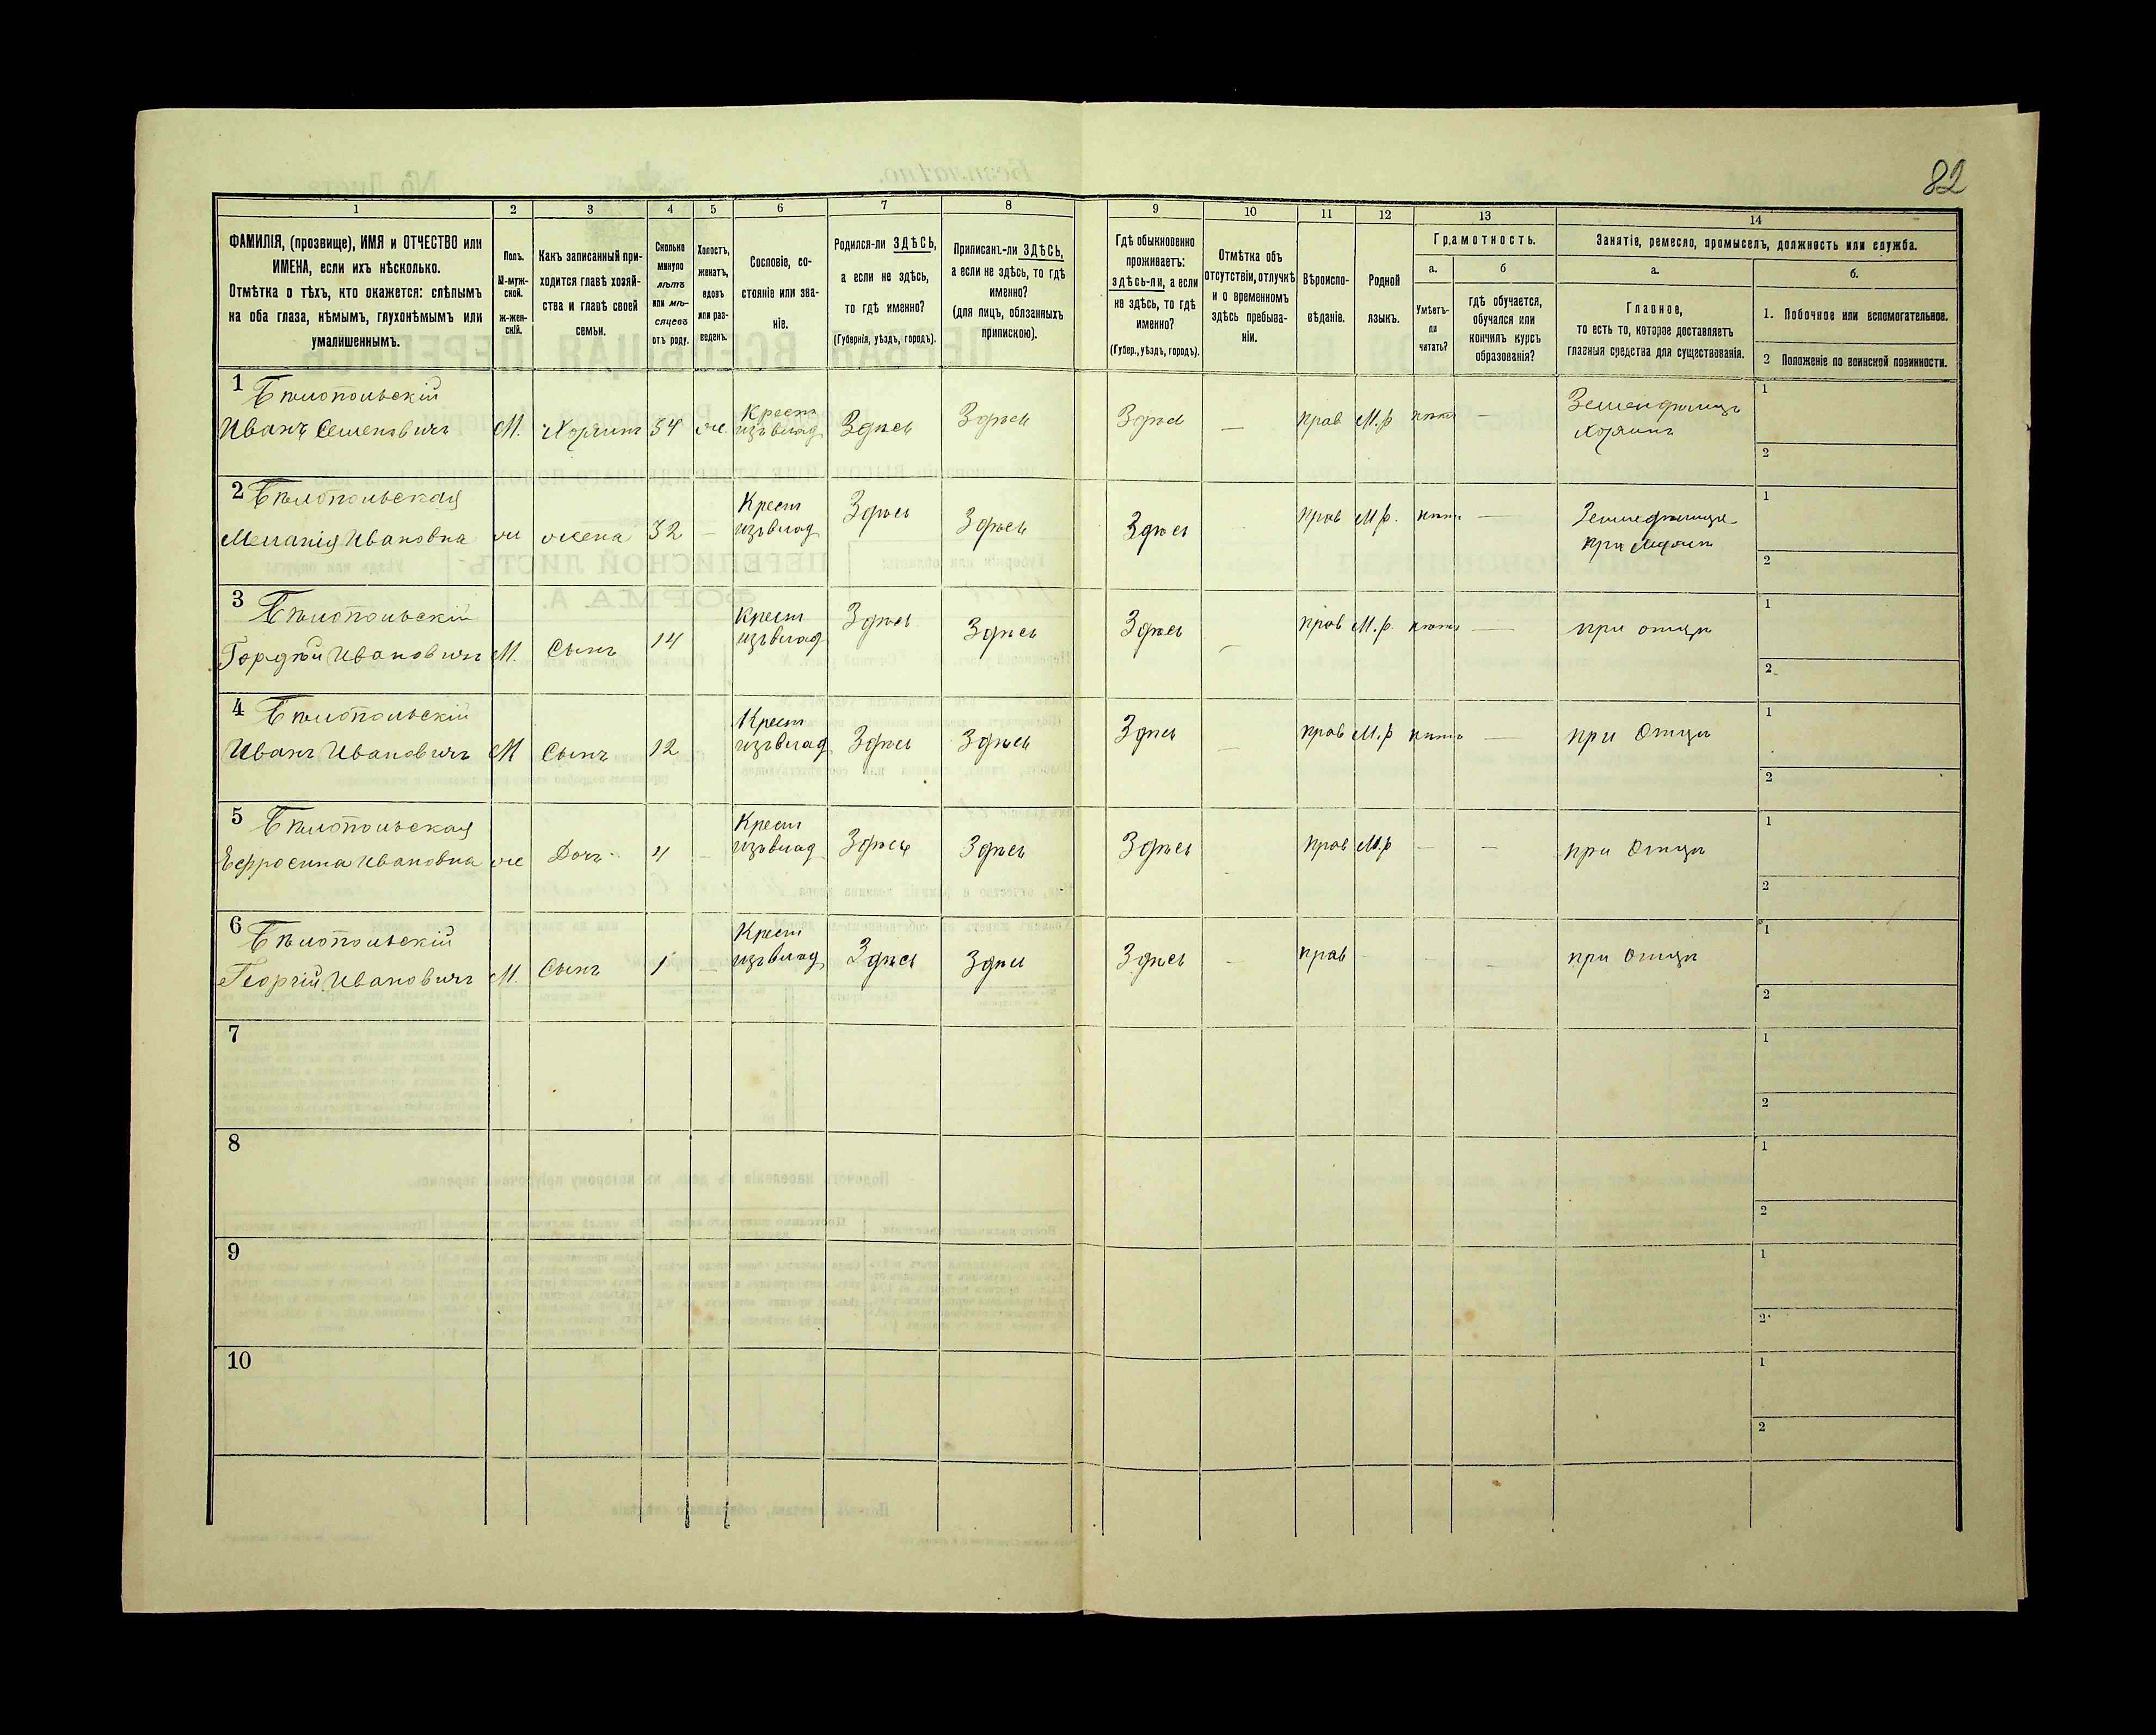 82
1 2 3 4 5 6 7 8 9 10 11 12 13 14
ФАМИЛІЯ, (прозвище), ИМЯ и ОТЧЕСТВО или
ИМЕНА, если ихъ нѣсколько.
Отмѣтка о тѣхъ, кто окажется: слѣпымъ
на оба глаза, нѣмымъ, глухонѣмымъ или
умалишеннымъ.
Полъ.
М-муж-
ской.
ж-жен-
скій.
Какъ записанный при-
ходится главѣ хозяй-
ства и главѣ своей
семьи.
Сколько
минуло
лѣтъ
или мѣ-
сяцевъ
отъ роду.
Холостъ,
женатъ,
вдовъ
или раз-
веденъ.
Сословіе, со-
стояніе или зва-
ніе.
Родился-ли ЗДѢСЬ,
а если не здѣсь,
то гдѣ именно?
(Губернія, уѣздъ, городъ).
Приписанъ-ли ЗДѢСЬ,
а если не здѣсь, то гдѣ
именно?
(для лицъ, обязанныхъ
припискою).
Гдѣ обыкновенно
проживаетъ:
здѣсь-ли, а если
не здѣсь, то гдѣ
именно?
(Губер., уѣздъ, городъ).
Отмѣтка объ
отсутствіи, отлучкѣ
и о временномъ
здѣсь пребыва-
ніи.
Вѣроиспо-
вѣданіе.
Родной
языкъ.
Грамотность.
а.
Умѣетъ-
ли
читать?
б
гдѣ обучается,
обучался или
кончилъ курсъ
образованія?
Занятіе, ремесло, промыселъ, должность или служба.
а.
Главное,
то есть то, которое доставляетъ
главныя средства для существованія.
б.
1. Побочное или вспомогательное.
2 Положеніе по воинской повинности.
1 Бѣлопольскій Крест Земледѣлецъ 1
Иванъ Семеновичъ М. Хозяинъ 54 же. изъ влад Здѣсь Здѣсь Здѣсь — прав М.р нѣтъ — Хозяинъ
2
2 Бѣлопольская Крест Земледѣлица 1
Меланія Ивановна ж жена 32 — изъ влад Здѣсь Здѣсь Здѣсь прав М.р. нѣтъ — при
2
3 Бѣлопольскій Крест 1
Гордѣй Ивановичъ М. Сынъ 14 изъ влад Здѣсь Здѣсь Здѣсь — прав М.р. нѣтъ — при отцѣ
2
4 Бѣлопольскій Крест 1
Иванъ Ивановичъ М Сынъ 12 изъ влад Здѣсь Здѣсь Здѣсь — прав М.р нѣтъ — при Отцѣ
2
5 Бѣлопольская Крест 1
Ефросина Ивановна же Дочь 4 — изъ влад Здѣсь Здѣсь Здѣсь прав М.р — — при Отцѣ
2
6 Бѣлопольскій Крест 1
Георгій Ивановичъ М. Сынъ 1 — изъ влад Здѣсь Здѣсь Здѣсь — прав - - — при Отцѣ
2
7 1
2
8 1
2
9 1
2
10 1
2